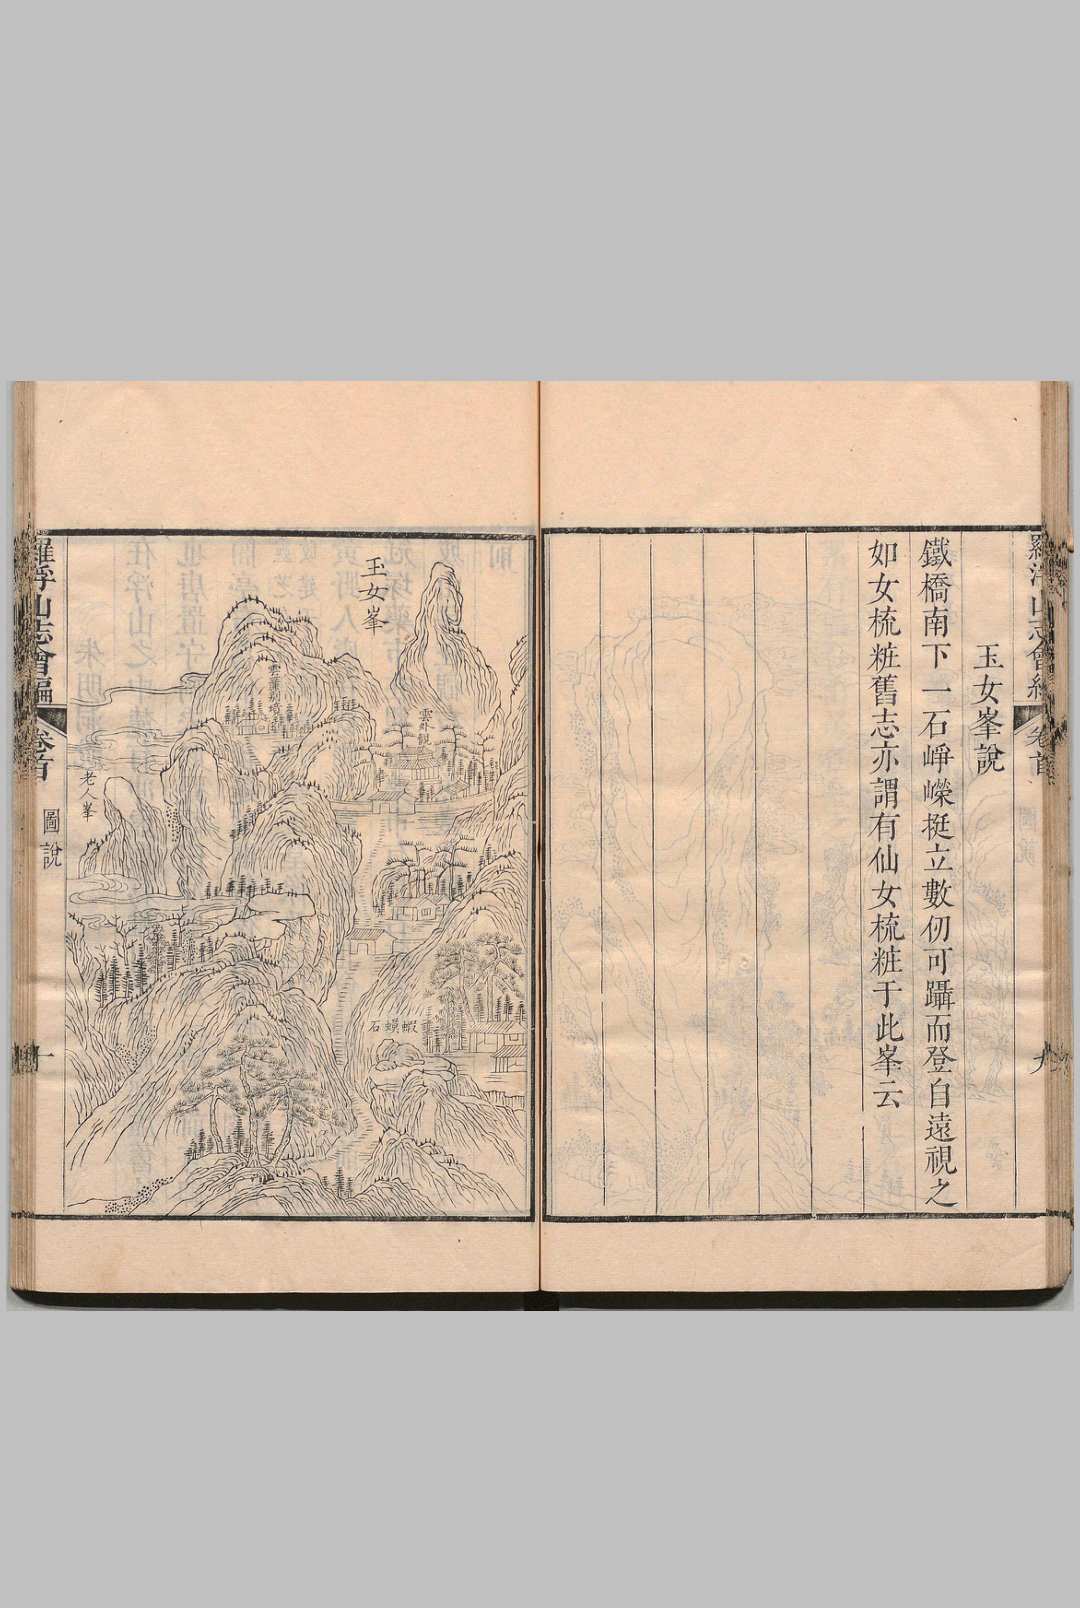 玉女峯說
鐵橋南下一石崢嶸挺立數仞可躡而登自遠視之
如女梳粧舊志亦謂有仙女梳粧于此峯云
玉女峯
雲外觀
蝦蟆石
老人峯
羅浮山志會編
卷首
圖說